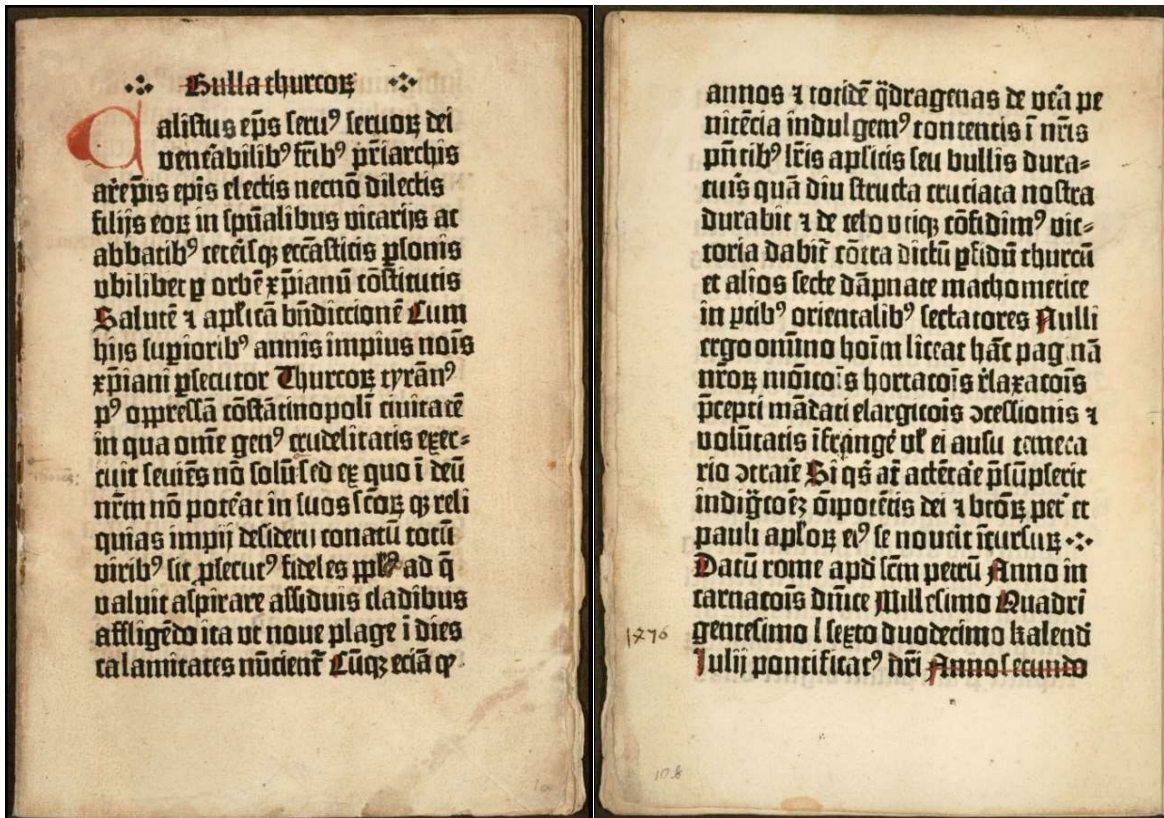 Bulla thurcoꝝ
Calistus ep̄s seruꝰ seruoꝝ dei
ven̄abilibꝰ fr̄ibꝰ pr̄iarchis
ar̄ep̄is ep̄is electis necnō dilectis
filijs eoꝝ in sp̄ualibus vicarijs ac
abbatibꝰ ceteīsqꝫ eccāsticis ꝑsonis
vbilibet ꝑ orbē xp̄ianū cōstitutis
Salutē ⁊ apl̄icā bn̄diccionē Cum
hijs suꝑioribꝰ annis impius nois̄
xp̄iani ꝑsecutor Thurcoꝝ tyrānꝰ
pꝰ oppressā cōstātinopolī ciuitatē
in qua om̄e genꝰ crudelitatis exer⸗
cuit seuiēs nō solū sed ex quo ī deū
nr̄m nō pot̄eat in suos sc̄oꝝ qꝫ reli
quias impij desiderij conatū totū
viribꝰ sit ꝓsecutꝰ fideles pp̄ls̄ ad q̄
valuit aspirare assiduis cladibus
affligēdo ita vt noue plage ī dies
calamitates nūcient̄ Cūqꝫ eciā qꝛ
annos ⁊ totidē q̄dragenas de ve͛a pe
nitēcia indulgemꝰ contentis ī nr̄is
pn̄tibꝰ lr̄is apl̄icis seu bullis dura⸗
turis quā diu structa cruciata nostra
durabit ⁊ de celo vtiqꝫ cōfidimꝰ vic⸗
toria dabit̄ cōtra dictū ꝑfidū thurcū
et alios secte dāpnate machometice
in ꝑtibꝰ orientalibꝰ sectatores Nulli
ergo om̄no hoīm liceat hāc paginā
nr̄oꝝ mōitoīs hortatoīs rl̄axatoīs
p̄cepti mādati elargitoīs ↄcessionis ⁊
volūtatis īfr̄inge͛ vl̄ ei ausu temera
rio ↄtraīe Si qs̄ at̄ attēta͛e p̄sūpserit
indigt̄oēꝫ ōipotētis dei ⁊ bt̄oꝝ pet͛ et
pauli apl̄oꝝ eiꝰ se nouerit īcursuꝝ
Datū rome apd̄ sc̄m petrū Anno in
carnatoīs dn̄ice Millesimo Quadri
gentesimo l sexto duodecimo kalendꝭ
Julij pontificatꝰ nr̄i Anno secundo
108